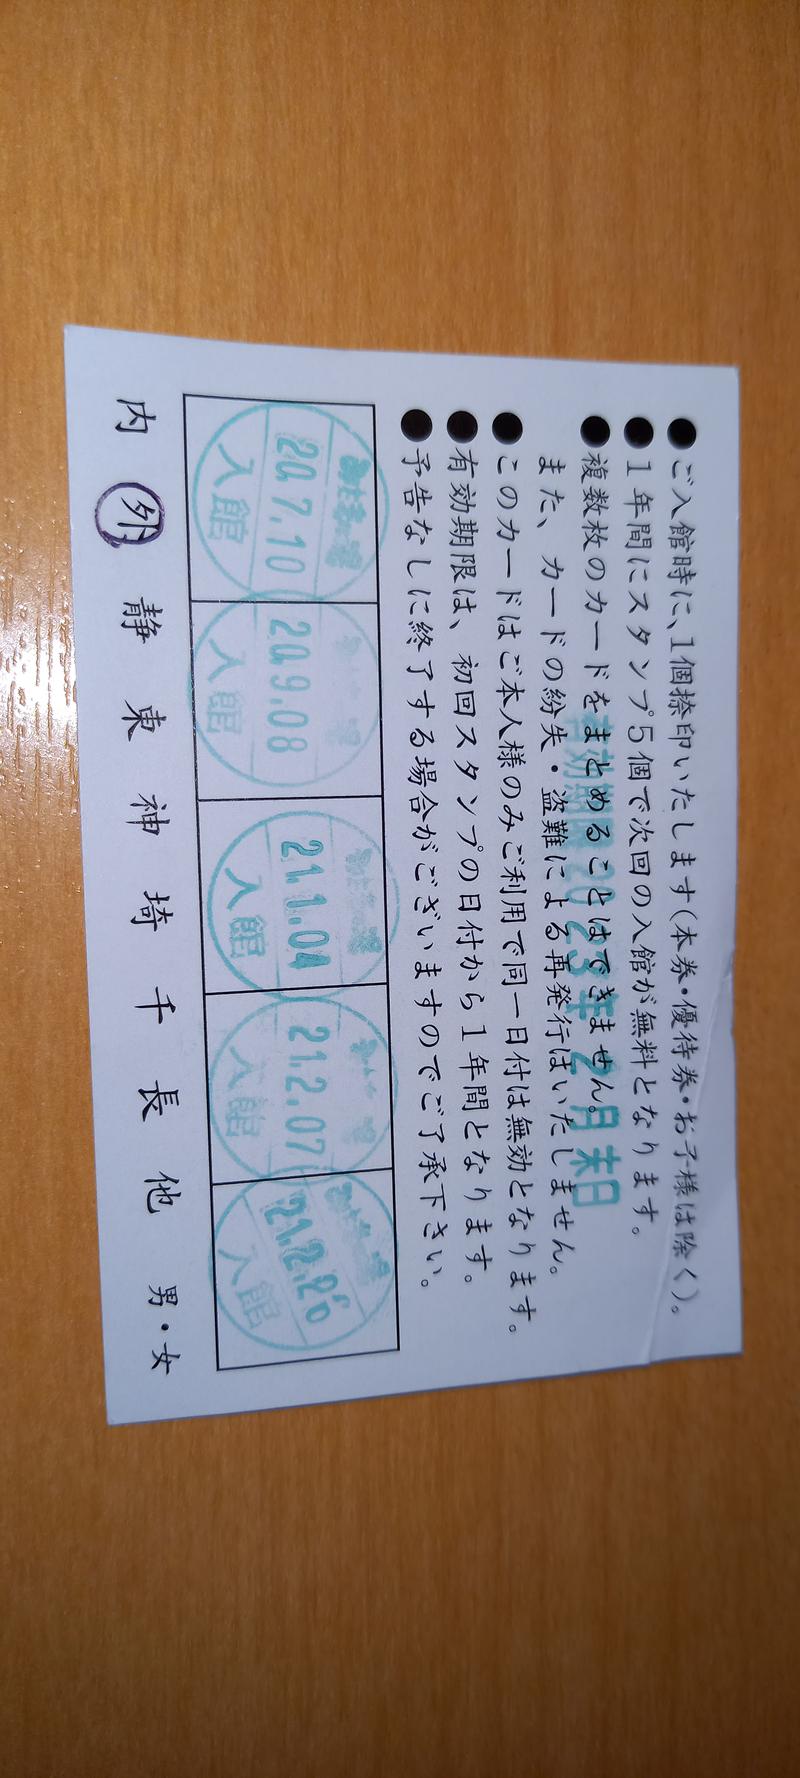 ●ご入館時に、1個捺印いたします(本券・優待券・お子様は除く)。
●1年間にスタンプ5個で次回の入館が無料となります。
●複数枚のカードをまとめることはできません。
また、カードの紛失・盗難による再発行はいたしません。
●このカードはご本人様のみご利用で同一日付は無効となります。
●有効期限は、初回スタンプの日付から1年間となります。
●予告なしに終了する場合がございますのでご了承下さい。
有効期限2023年2月末日
20.7.10
入館
20.9.08
入館
21.1.04
入館
21.2.07
入館
21.2.26
入館
内 外 静 東 神 埼 千 長 他 男・女